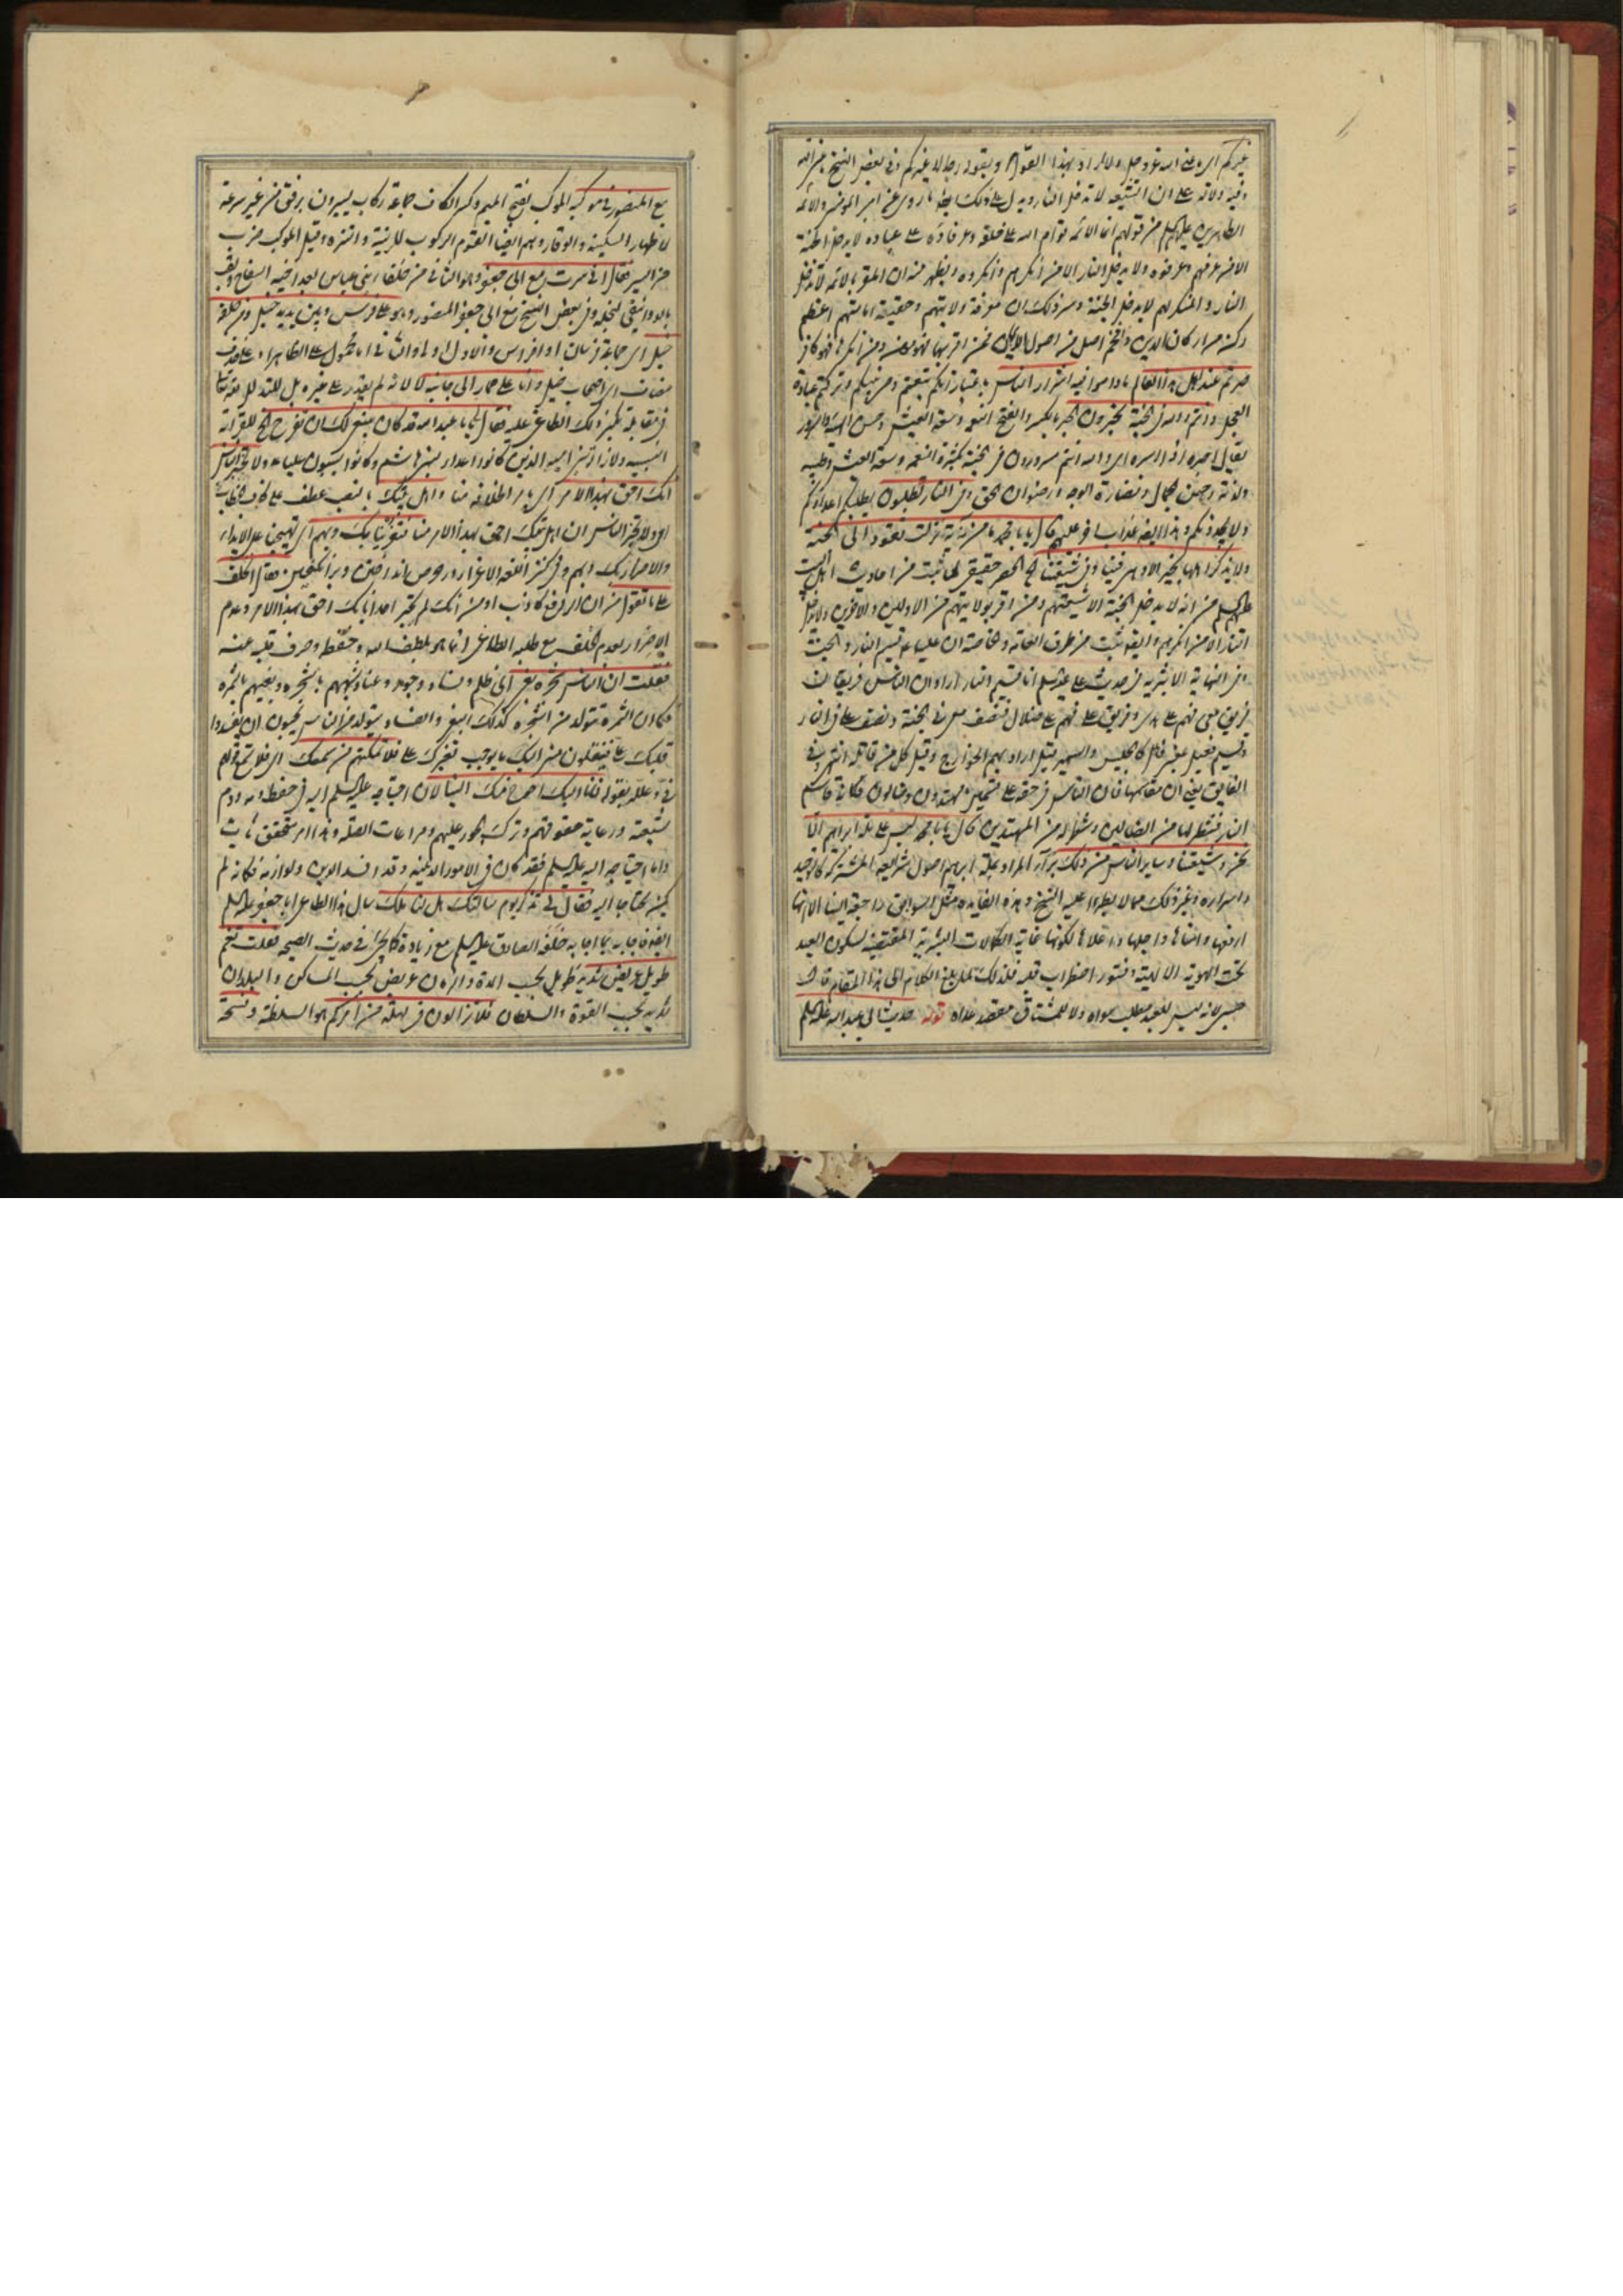 غيركم اى ما عنى الله عز وجل ولا اراد بهذا القول ويقوله رجالا غيركم وفى بعض النسخ
وفيه دلالة على ان الشيعة لا تدخل النار ويدل على ذلك ايضا ما روى عن امير المؤمنين والائمة
الطاهرين عليهم السلم من قولهم انما الائمة قوام الله على خلقه وعرفاؤه على عباده لا يدخل الجنة
الا من عرفهم وعرفوه ولا يدخل النار الا من انكرهم وانكروه ويظهر منه ان المقر بالائمة لا يدخل
النار والمنكر لهم لا يدخل الجنة وسر ذلك ان معرفة ولايتهم وحقيقة امامتهم اعظم
ركن من اركان الدين وافخم اصل من اصول الايمان فمن اقر بها فهو مؤمن ومن انكرها فهو كافر
صرتم عند اهل هذا العالم ما داموا فيه اشرار الناس باعتبار
العجل وانتم والله فى الجنة تحبرون الحبر بالكسر والفتح النعمة وسعة العيش وحسن
يقال احبره اذا اسره اى والله انتم مسرورون فى الجنة بكثرة النعمة وسعة العيش وطيبه
ولذته وحسن الجمال ونضارة الوجه ورضوان الحق وفى النار تطلبون يطلبكم اعداؤكم
ولا يجدونكم وهذا ايضا عذاب اخر عليهم قال يا با محمد ما من آية نزلت تقود الى الجنة
ولا يذكر اهلها بخير الا وهى فينا وفى شيعتنا الخ الحصر حقيقى لما ثبت من احاديث اهل البيت
عليهم السلم من انه لا يدخل الجنة الا شيعتهم ومن اقر بولايتهم من الاولين والاخرين ولا يدخل
النار الا من انكرهم وايضا ثبت من طرق العامة والخاصة ان عليا ع قسيم النار والجنة
وفى النهاية الاثيرية فى حديث على عليه السلم انا قسيم النار اراد ان الناس فريقان
فريق معى فهم على هدى وفريق على فهم على ضلال فنصف معى فى الجنة ونصف على فى النار
وقسيم فعيل بمعنى فاعل كالجليس والسمير قيل اراد بهم الخوارج وقيل كل من قاتله انتهى وفى
الفايق يعنى ان مقاسمها فان الناس فى حقه على قسمين مهتدون وضالون فكانه قاسم
النار فشطر لها من الضالين وشطر له من المهتدين قال يا با محمد ليس على ملة ابراهيم الا
نحن وشيعتنا وساير الناس من ذلك برآء المراد بملة ابراهيم اصول شرايعه المشتركة كالتوحيد
واسراره وغير ذلك مما لا يطرأ عليه النسخ وهذه الفايدة مثل السوابق راجعة الينا الا انها
ارفعها واسناها واجلها واعلاها لكونها غاية الكمالات البشرية المقتضية لسكون العبد
تحت الهوية الالهية وفتور اضطراب قلبه فلذلك لما بلغ الكلام الى هذا المقام قال
حسبى لانه ليس للعبد مطلب سواه ولا للمشتاق مقصد عداه قوله حديث ابى عبد الله عليه السلم
مع المنصور فى موكبه الموكب بفتح الميم وكسر الكاف جماعة ركاب يسيرون برفق من غير سرعة
لاظهار السكينة والوقار وهم ايضا القوم الركوب للزينة والتنزه وقيل الموكب ضرب
من السير فقال انى سرت مع ابى جعفر وهو الثانى من خلفاء بنى عباس بعد اخيه السفاح ويلقب
بالدوانيقى لبخله وفى بعض النسخ مع ابى جعفر المنصور وهو على فرس وبين يديه خيل ومن خلفه
خيل اى جماعة فرسان او افراس والاول اولى والثانى اما محمول على الظاهر او على حذف
مضاف اى اصحاب خيل وانا على حمار الى جانبه لا لانه لم يقدر على غيره بل للتذلل لله تعالى
فى مقابلة تجبر ذلك الطاغى عليه فقال لى يا با عبد الله قد كان ينبغى لك ان تفرح الخ للقرابة
النسبية ولازالة بنى امية الذين كانوا اعداء بنى هاشم وكانوا يسبون عليا ع ولا تخبر الناس
انك احق بهذا الامر اى بامر الخلافة منا واهل بيتك بالنصب عطف على كاف الخطاب
اى ولا تخبر الناس ان اهل بيتك احق بهذا الامر منا فتغرينا بك وبهم اى تهيجنا على الايذاء
والاضرار بك وبهم وفى كنز اللغة الاغراء ورحريص انداختن وبرانگيختن فقال اتحلف
على ما تقول من ان الرافع كاذب او من انك لم تخبر احدا بانك احق بهذا الامر وعدم
الاضرار بعدم الحلف مع طلب الطاغى انما هو بلطف الله وحفظه وصرف قلبه عنه
فقلت ان الناس شجرة بغى اى ظلم وفساد وجور وعناد شبههم بالشجرة وبغيهم بالثمرة
فكما ان الثمرة تتولد من الشجرة كذلك البغى والفساد يتولد من الناس يحبون ان يفسدوا
قلبك على فينقلون منى اليك ما يوجب تغيرك على فلا تمكنهم من سمعك اى فلا تسمع قولهم
فىّ وعلله بقوله فانا اليك احوج منك الينا لان احتياجه عليه السلم اليه فى حفظ دمه ودم
شيعته ورعاية حقوقهم وترك الجور عليهم ومراعات الصلة وهذا امر متحقق ثابت
واما احتياجه اليه عليه السلم فقد كان فى الامور الدينية وقد افسد الدين ولوازمه فكانه لم
يكن محتاجا اليه فقال لى تذكر يوم سألتك هل لنا ملك سال هذا الطاغى ابا جعفر عليه السلم
ايضا فاجابه بما اجابه خلفه الصادق عليه السلم مع زيادة كما يجئ فى حديث الصيحة فقلت نعم
طويل عريض شديد طويل بحسب المدة والزمان عريض بحسب المساكن والبلدان
شديد بحسب القوة والسلطان فلا تزالون فى مهلة من امركم هو السلطنة وفسحة